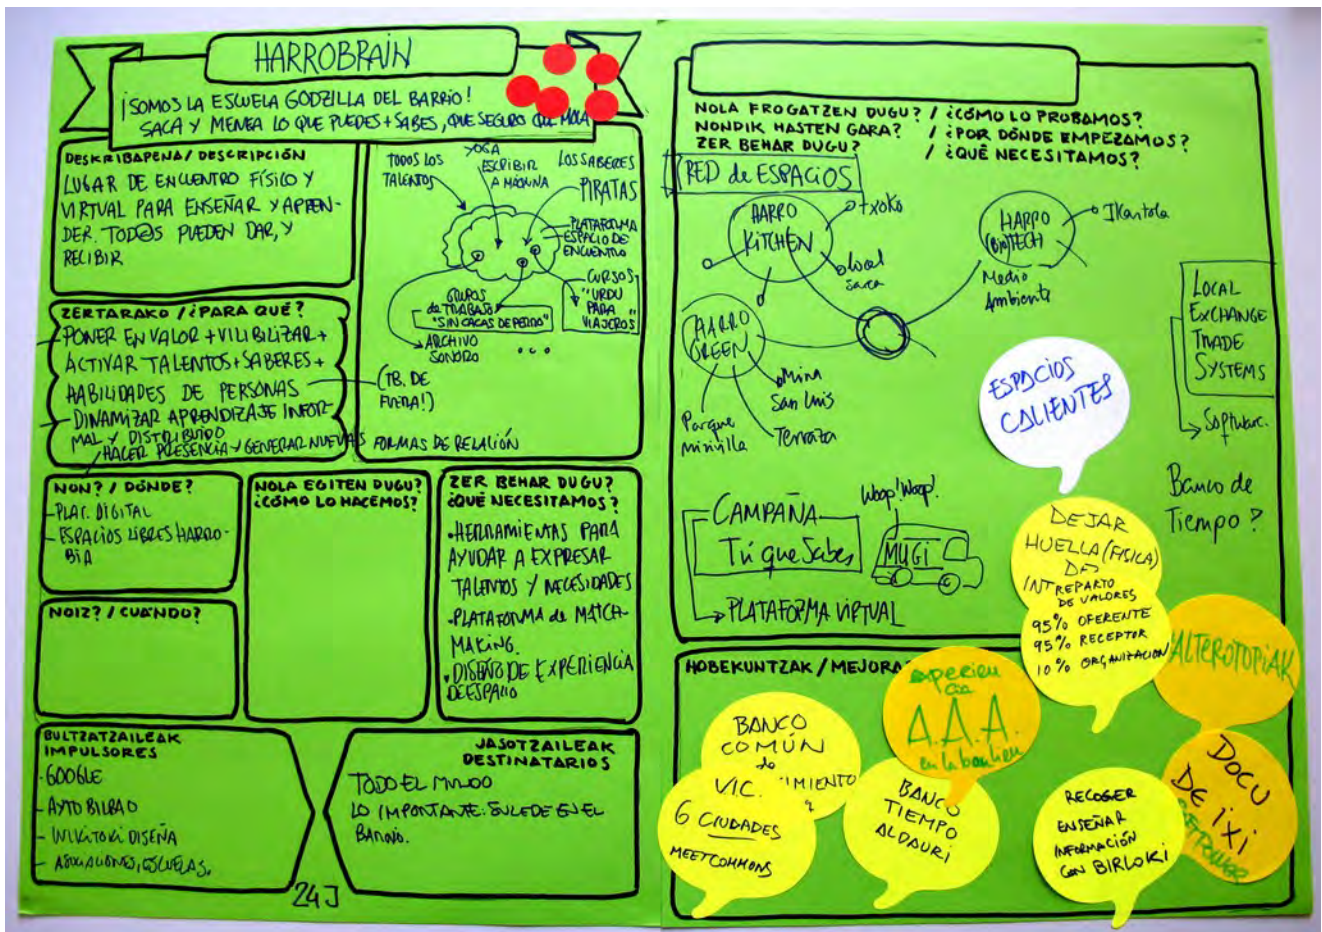 HARROBRAIN
¡SOMOS LA ESCUELA GODZILLA DEL BARRIO!
SACA Y MENEA LO QUE PUEDES + SABES, QUE SEGURO QUE MOLA
DESKRIBAPENA / DESCRIPCIÓN
LUGAR DE ENCUENTRO FÍSICO Y
VIRTUAL PARA ENSEÑAR Y APREN-
DER. TOD@S PUEDEN DAR, Y
RECIBIR
TODOS LOS
TALENTOS
YOGA
ESCRIBIR
A MÁQUINA
LOS SABERES
PIRATAS
PLATAFORMA
ESPACIO DE
ENCUENTRO
CURSOS
"URDU
PARA
VIAJEROS"
GRUPOS
de TRABAJO
"SIN CACAS DE PERRO"
ARCHIVO
SONORO
...
ZERTARAKO / ¿PARA QUÉ?
PONER EN VALOR + VILIBILIZAR +
ACTIVAR TALENTOS + SABERES +
HABILIDADES DE PERSONAS
(TB. DE
FUERA!)
- DINAMIZAR APRENDIZAJE INFOR-
MAL Y DISTRIBUIDO
HACER PRESENCIA Y GENERAR NUEVAS FORMAS DE RELACIÓN
NON? / DÓNDE?
- PLAT. DIGITAL
- ESPACIOS LIBRES HARRO-
BIA
NOIZ? / CUÁNDO?
NOLA EGITEN DUGU?
¿CÓMO LO HACEMOS?
ZER BEHAR DUGU?
¿QUÉ NECESITAMOS?
• HERRAMIENTAS PARA
AYUDAR A EXPRESAR
TALENTOS Y NECESIDADES
• PLATAFORMA de MATCH-
MAKING.
• DISEÑO DE EXPERIENCIA
DE ESPACIO
BULTZATZAILEAK
IMPULSORES
- GOOGLE
- AYTO BILBAO
- WIKITOKI DISEÑA
- ASOCIACIONES, ESCUELAS.
JASOTZAILEAK
DESTINATARIOS
TODO EL MUNDO
LO IMPORTANTE: SUCEDE EN EL
BARRIO.
24 J
NOLA FROGATZEN DUGU? / ¿CÓMO LO PROBAMOS?
NONDIK HASTEN GARA? / ¿POR DÓNDE EMPEZAMOS?
ZER BEHAR DUGU? / ¿QUÉ NECESITAMOS?
RED de ESPACIOS
HARRO
KITCHEN
txoko
local
sarea
HARRO
(BIO)TECH
Ikastola
Medio
Ambiente
HARRO
GREEN
Mina
San Luis
Terraza
Parque
miribilla
LOCAL
EXCHANGE
TRADE
SYSTEMS
Software.
Banco de
Tiempo?
ESPACIOS
CALIENTES
CAMPAÑA
Tú que Sabes
PLATAFORMA VIRTUAL
Woop! Woop!
MUGI
DEJAR
HUELLA (FÍSICA)
REPARTO
DE VALORES
95% OFERENTE
95% RECEPTOR
10% ORGANIZACIÓN
ALTEROTOPIAK
HOBEKUNTZAK / MEJORA
experien
cia
A.A.A.
en la banlieu
BANCO
COMÚN
IMIENTO
V.I.C.
6 CIUDADES
MEETCOMMONS
BANCO
TIEMPO
ALDAURI
RECOGER
ENSEÑAR
INFORMACIÓN
CON BIRLOKI
DOCU
DE iTi